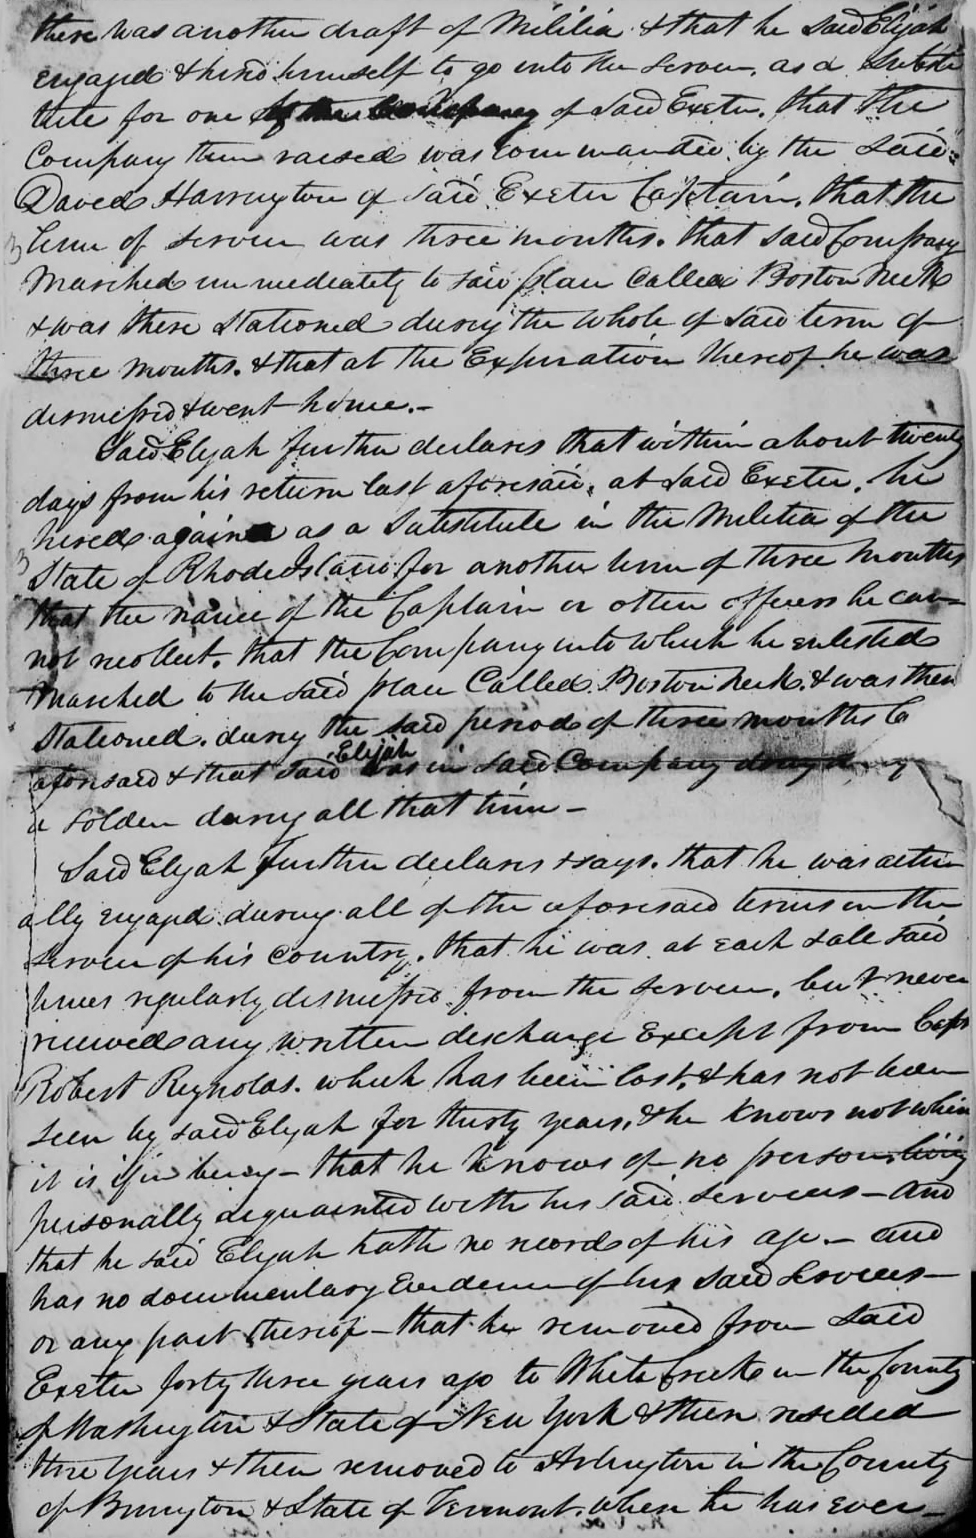 there was another draft of Militia & that he said Elijah
engaged & hired himself to go into the service, as a Substi
tute for one of said Exeter. that the
Company then raised was commanded by the said
David Harrington of said Exeter Captain. that the
3 term of service was three months. that said Company
Marched immediately to said place Called Boston Neck
& was there Stationed during the whole of said term of
three months. & that at the Expiration thereof he was
dismissed & went home.-
Said Elijah further declares that within about twenty
days from his return last aforesaid, at said Exeter, he
hired again as a Substitute in the Militia of the
3 State of Rhode Island for another term of three months
that the name of the Captain or other officers he can
not recollect. that the Company into which he enlisted
Marched to the said place Called Boston neck. & was then
Stationed. during the said period of three months
aforesaid & that said Elijah was in said Company
a soldier during all that time -
Said Elijah further declares & says. that he was actu
ally engaged during all of the aforesaid terms in the
service of his country. that he was at each said
times regularly dismissed from the service, but never
received any written discharge Except from Capt
Robert Reynolds. which has been lost, & has not been
seen by said Elijah for thirty years, & he knows not where
it is if in being - that he knows of no person living
personally acquainted with his said services - and
that he said Elijah hath no record of his age - and
has no documentary Evidence of his said services -
or any part thereof - that he removed from said
Exeter forty three years ago to White Creek in the County
of Washington & State of New York & then resided
three years & then removed to Arlington in the County
of Bennington & State of Vermont. where he has ever